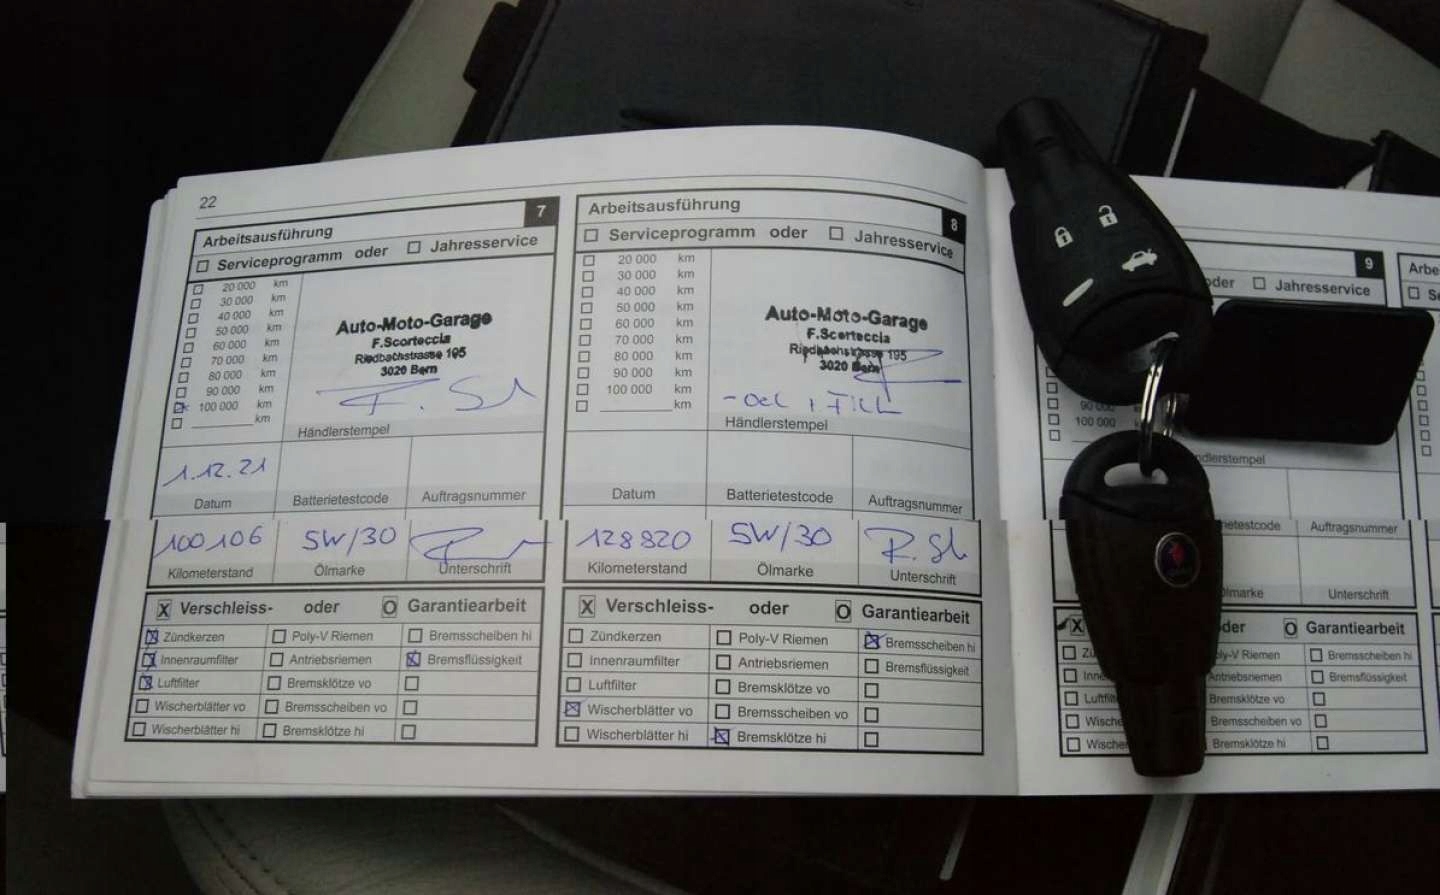 22
Arbeitsausführung 7
Serviceprogramm oder Jahresservice
20 000 km
30 000 km
40 000 km
50 000 km
60 000 km
70 000 km
80 000 km
90 000 km
100 000 km
km
Auto-Moto-Garage
F.Scorteccia
Riedbachstrasse 195
3020 Bern
Händlerstempel
1.12.21
Datum Batterietestcode Auftragsnummer
100106 5W/30
Kilometerstand Ölmarke Unterschrift
X Verschleiss- oder O Garantiearbeit
Zündkerzen Poly-V Riemen Bremsscheiben hi
Innenraumfilter Antriebsriemen Bremsflüssigkeit
Luftfilter Bremsklötze vo
Wischerblätter vo Bremsscheiben vo
Wischerblätter hi Bremsklötze hi
Arbeitsausführung 8
Serviceprogramm oder Jahresservice
20 000 km
30 000 km
40 000 km
50 000 km
60 000 km
70 000 km
80 000 km
90 000 km
100 000 km
km
Auto-Moto-Garage
F.Scorteccia
Riedbachstrasse 195
3020 Bern
Händlerstempel
Datum Batterietestcode Auftragsnummer
128820 5W/30
Kilometerstand Ölmarke Unterschrift
X Verschleiss- oder O Garantiearbeit
Zündkerzen Poly-V Riemen Bremsscheiben hi
Innenraumfilter Antriebsriemen Bremsflüssigkeit
Luftfilter Bremsklötze vo
Wischerblätter vo Bremsscheiben vo
Wischerblätter hi Bremsklötze hi
9
oder Jahresservice
90 000
100 000
ndlerstempel
rietestcode Auftragsnummer
lmarke Unterschrift
X der O Garantiearbeit
Zü ly-V Riemen Bremsscheiben hi
Inne ntriebsriemen Bremsflüssigkeit
Luftfilt Bremsklötze vo
Wische Bremsscheiben vo
Wische Bremsklötze hi
Arbe